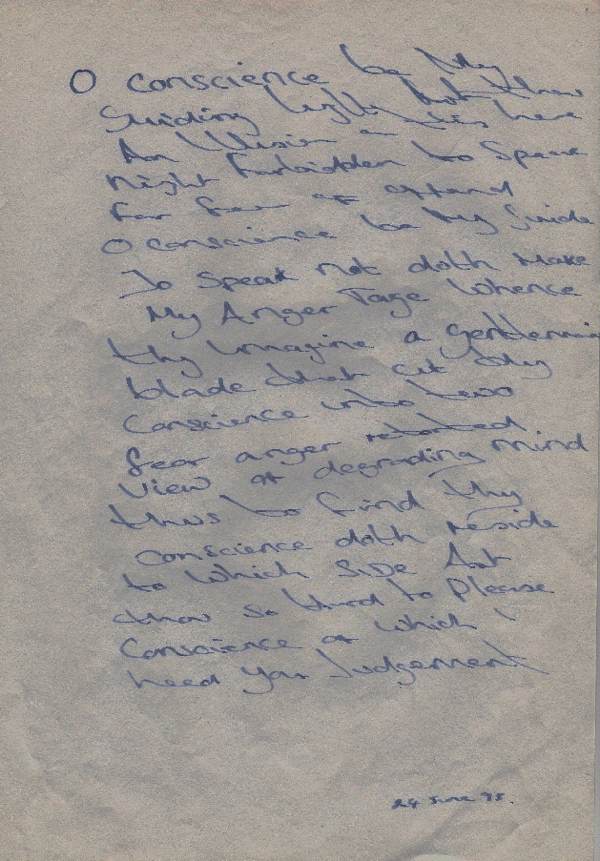 O conscience be My
Guiding light Art thou
An Illusion
Night Forbidden to Speak
For fear of offend
O conscience be My Guide
To Speak not doth Make
My Anger Whence
thy Imagine a
blade that cut thy
Conscience into two
fear anger
View of degrading mind
thus to find thy
Conscience doth reside
to Which SIDE Art
thou so Hard to Please
Conscience of which I
need your Judgement
24 June 95.